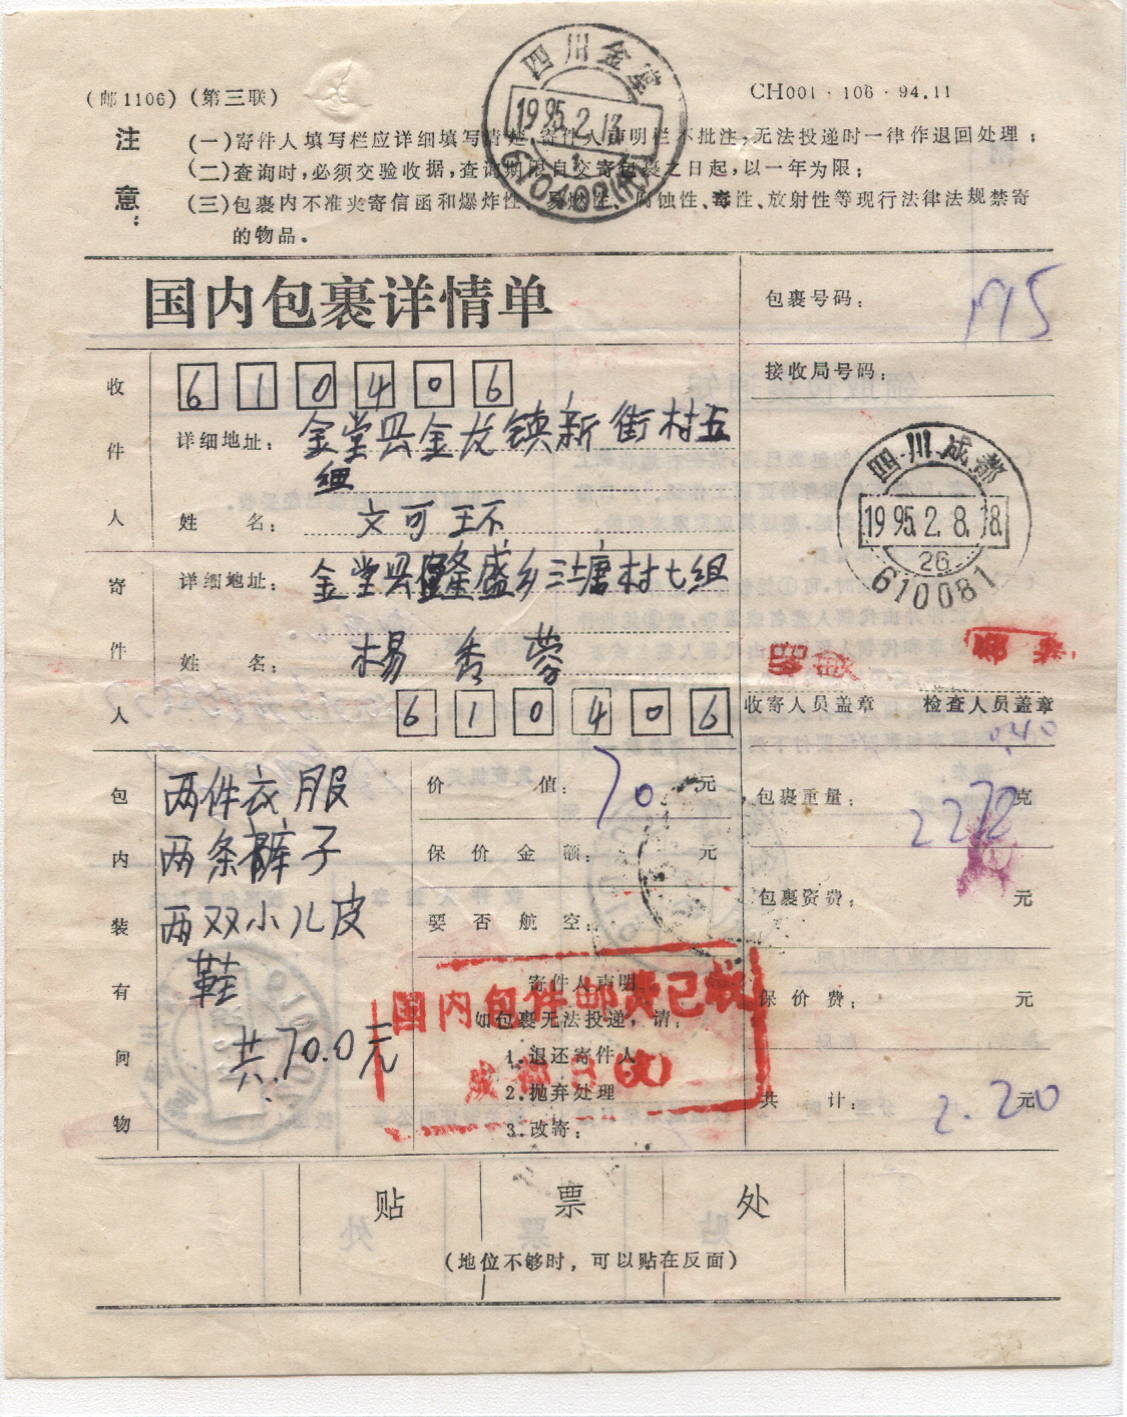 四川金堂
1995.2.13
(邮1106)(第三联)
CH001·106·94.11
注意：
(一)寄件人填写栏应详细填写清楚，寄件人声明栏不批注，无法投递时一律作退回处理；
(二)查询时，必须交验收据，查询期限自交寄包裹之日起，以一年为限；
(三)包裹内不准夹寄信函和爆炸性、易燃性、腐蚀性、毒性、放射性等现行法律法规禁寄
的物品。
国内包裹详情单
包裹号码：
接收局号码：
收件人
610406
详细地址：金堂县金龙镇新街村五
组
姓 名：文可环
寄件人
详细地址：金堂县隆盛乡三塘村七组
姓 名：杨秀蓉
610406
四川成都
1995.2.8.18
26
610081
收寄人员盖章
检查人员盖章
0.40
包内装有何物
两件衣服
两条裤子
两双小儿皮
鞋
共70.0元
价 值：70.元
保价金额： 元
要否航空：
寄件人声明
如包裹无法投递，请：
1.退还寄件人
2.抛弃处理
3.改寄：
国内包件邮费已收
成都
包裹重量：2272克
包裹资费： 元
保价费： 元
共 计：2.20元
贴 票 处
(地位不够时，可以贴在反面)